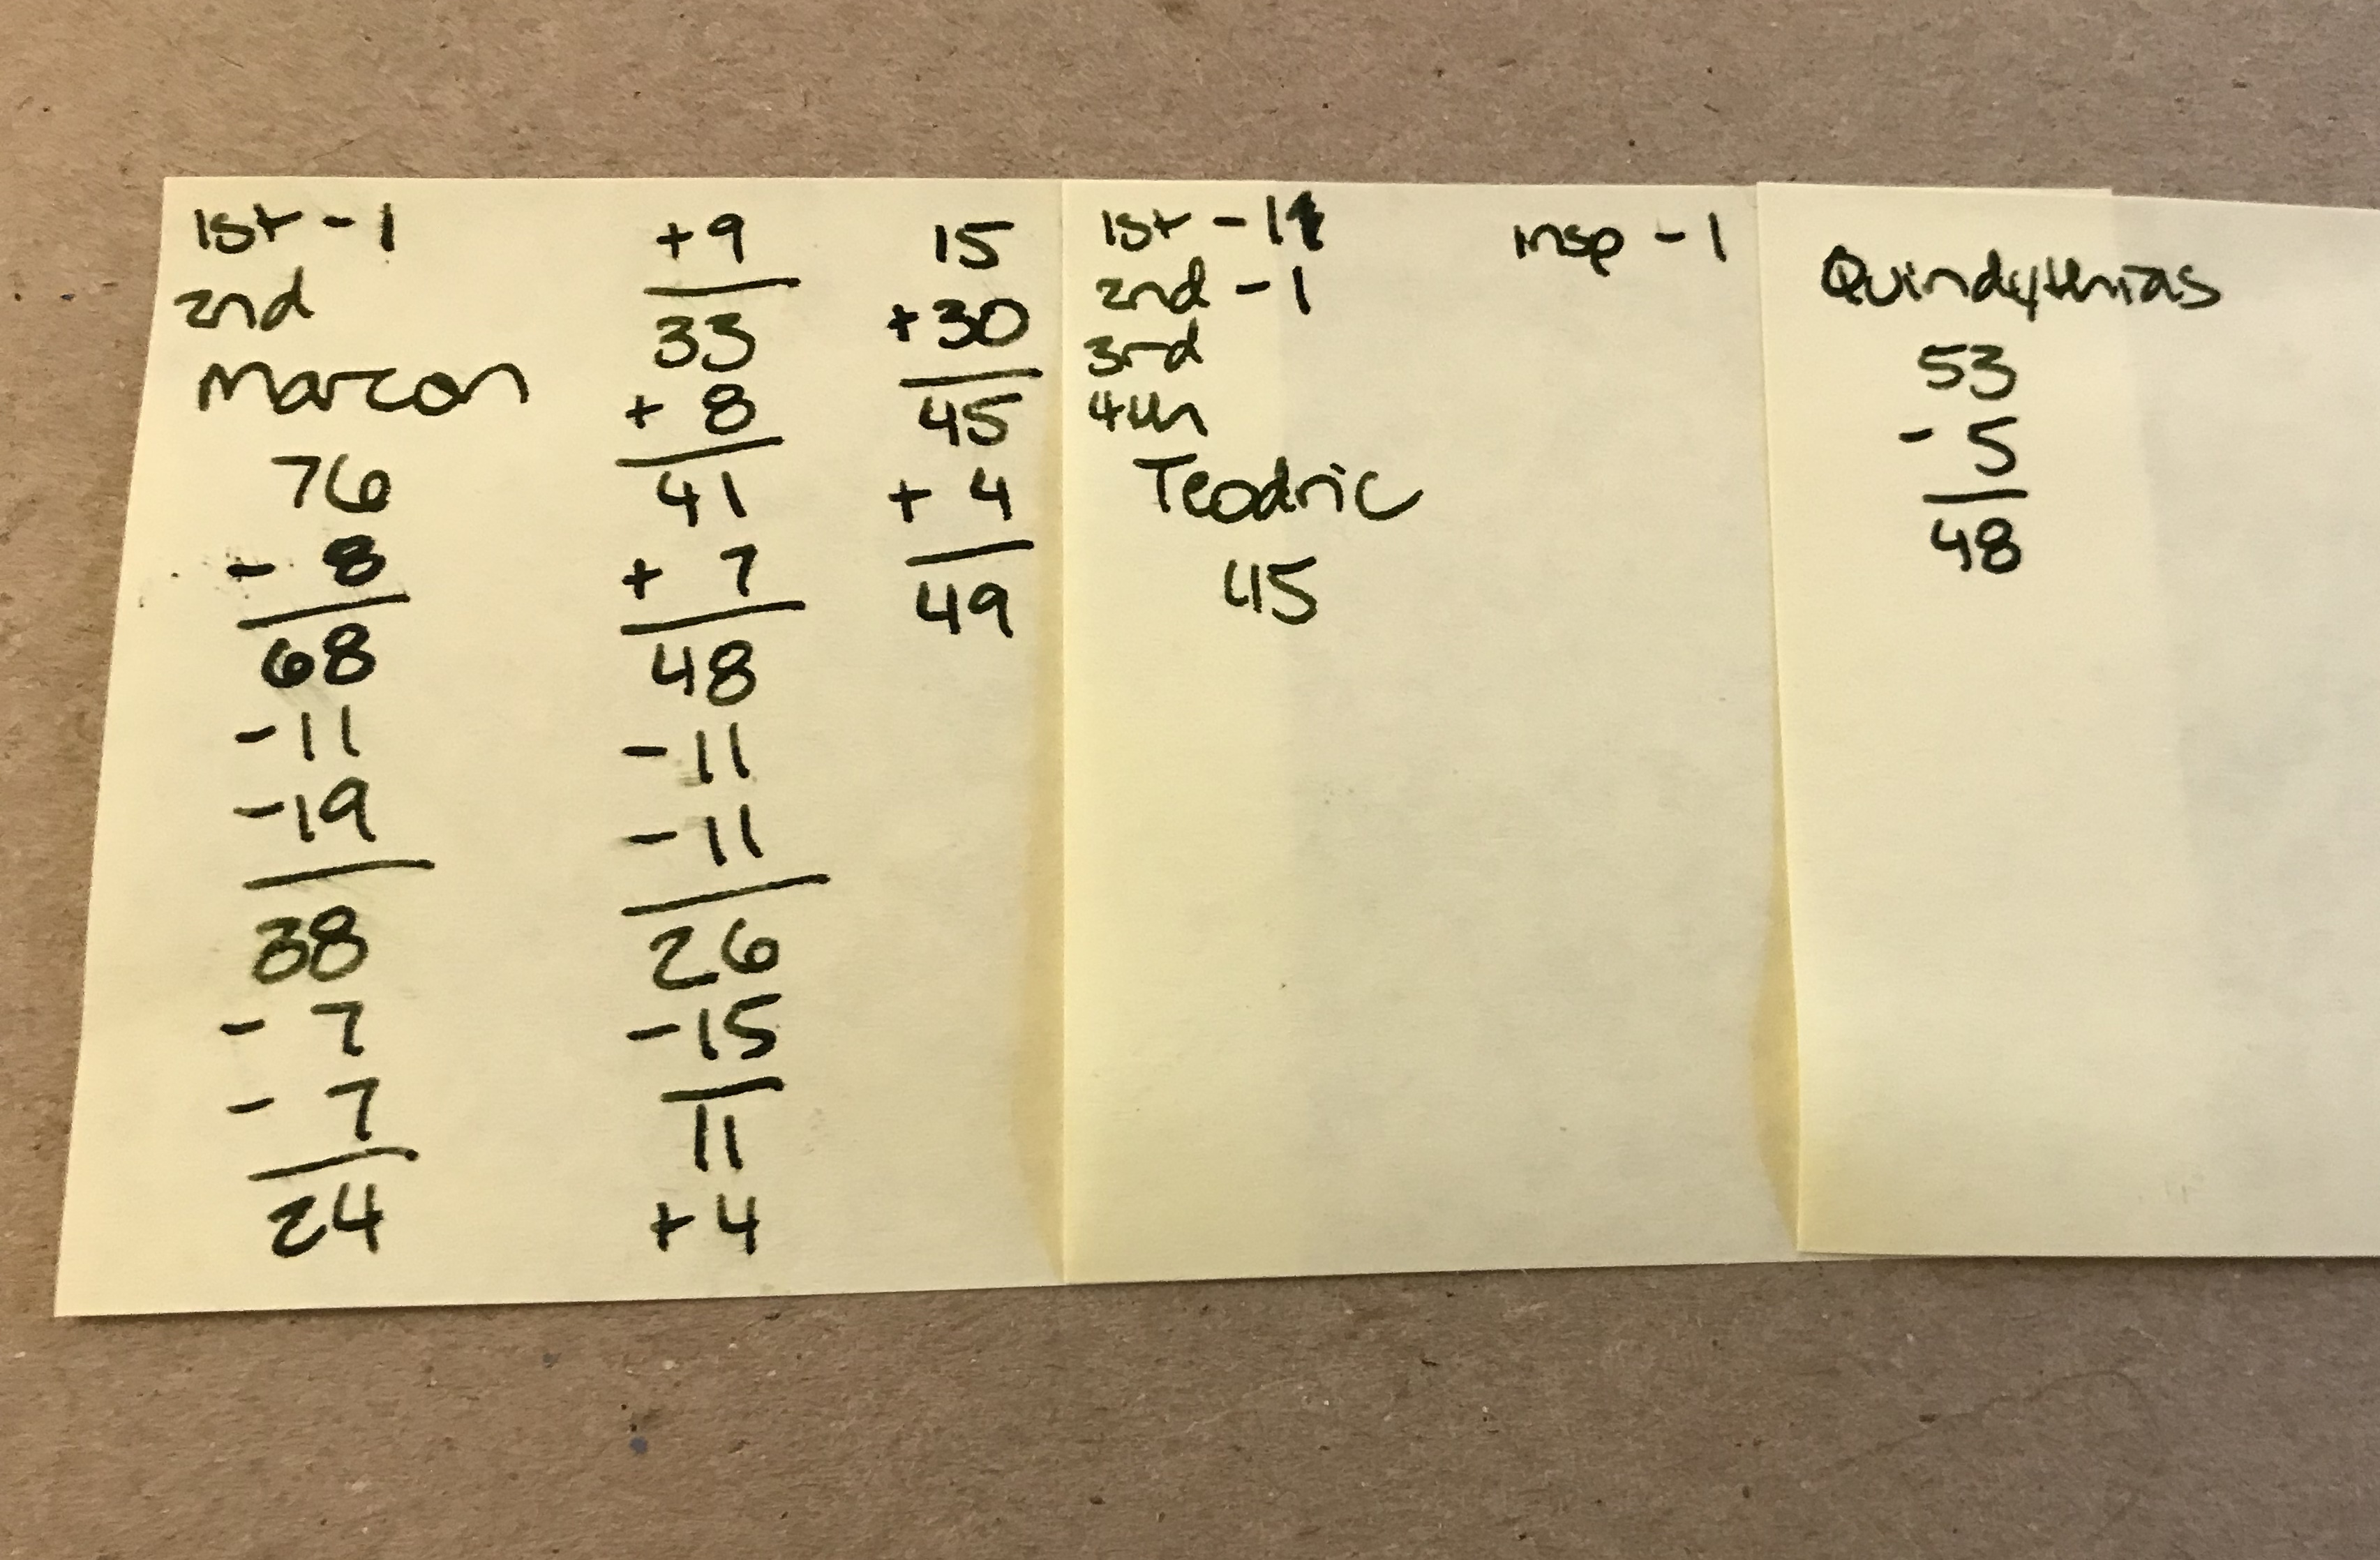 1st - 1
2nd
Marcon
76
- 8
68
-11
-19
38
- 7
- 7
24
+9
33
+ 8
41
+ 7
48
-11
-11
26
-15
11
+4
15
+30
45
+ 4
49
1st - 1
2nd - 1
3rd
4th
Teodric
45
insp - 1
Quindythias
53
- 5
48